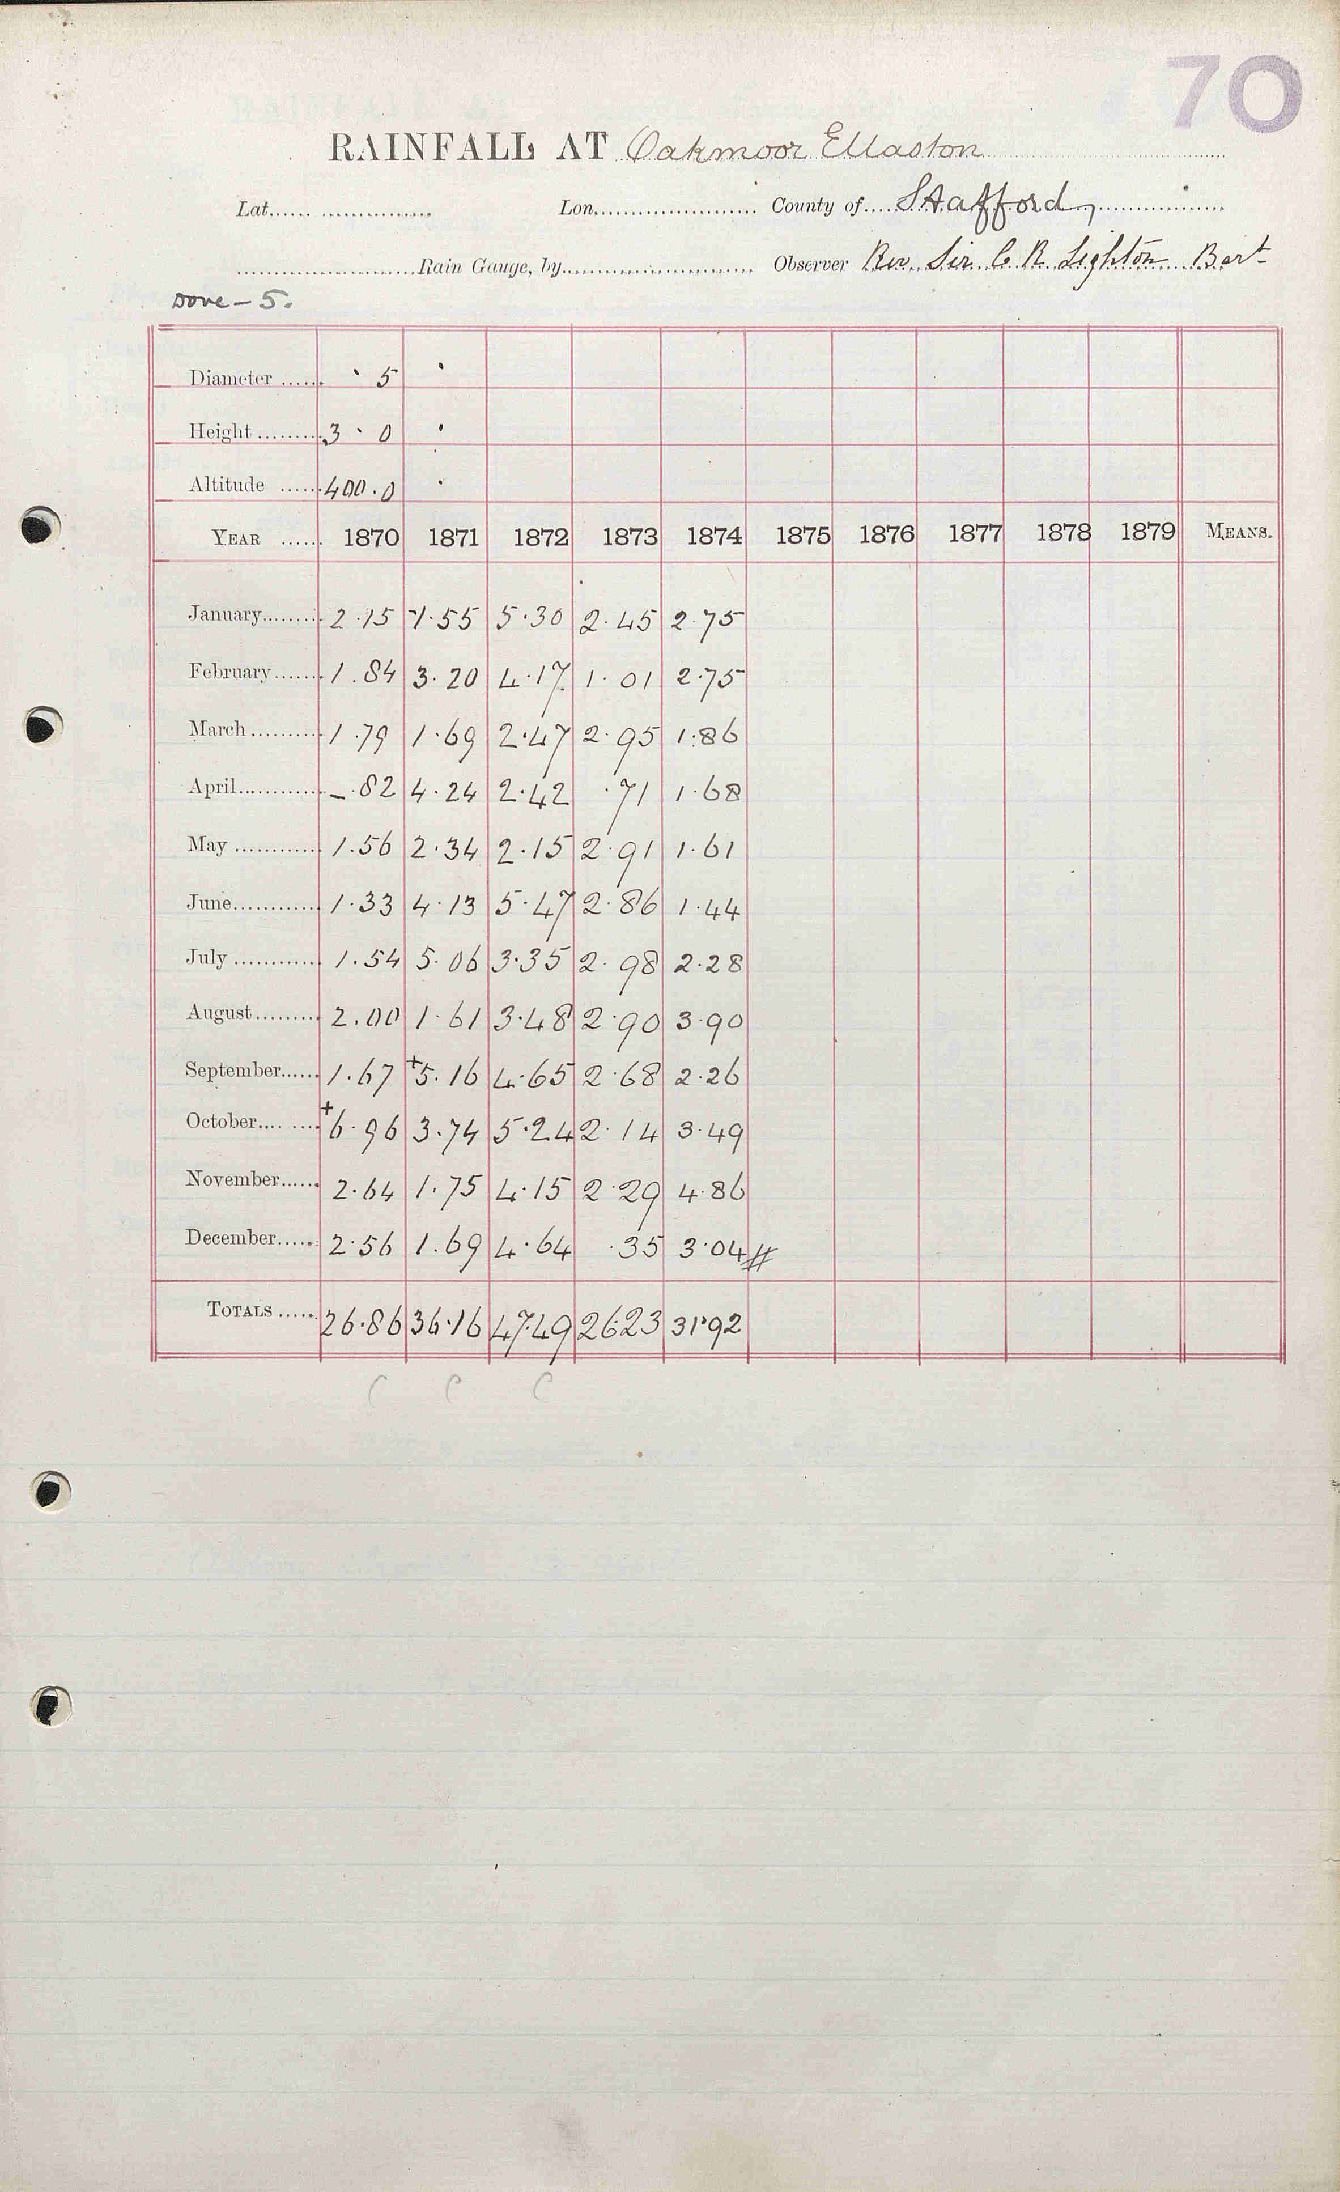 70
RAINFALL AT Oakmoor Ellaston
Lat. Lon. County of Stafford,
Rain Gauge, by Observer Rev Sir C R Lighton Bart
Dove - 5.
Diameter 5
Height 3 · 0
Altitude 400.0
YEAR 1870 1871 1872 1873 1874 1875 1876 1877 1878 1879 MEANS.
January 2.15 1.55 5.30 2.45 2.75
February 1.84 3.20 4.17 1.01 2.75
March 1.79 1.69 2.47 2.95 1.86
April -.82 4.24 2.42 .71 1.68
May 1.56 2.34 2.15 2.91 1.61
June 1.33 4.13 5.47 2.86 1.44
July 1.54 5.06 3.35 2.98 2.28
August 2.00 1.61 3.48 2.90 3.90
September 1.67 +5.16 4.65 2.68 2.26
October +6.96 3.74 5.24 2.14 3.49
November 2.64 1.75 4.15 2.29 4.86
December 2.56 1.69 4.64 .35 3.04 #
TOTALS 26.86 36.16 47.49 26.23 31.92
C C C